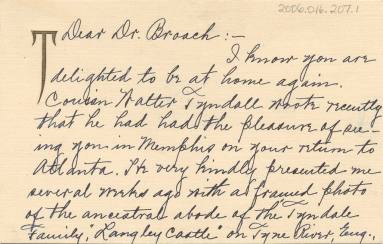 2006.016.207.1
T
Dear Dr. Broach:-
I know you are
delighted to be at home again.
Cousin Walter Tyndall wrote recently
that he had had the pleasure of see-
ing you in Memphis on your return to
Atlanta. He very kindly presented me
several weeks ago with a framed photo
of the ancestral abode of the Tyndale
Family, "Langley Castle" on Tyne River, Eng.,